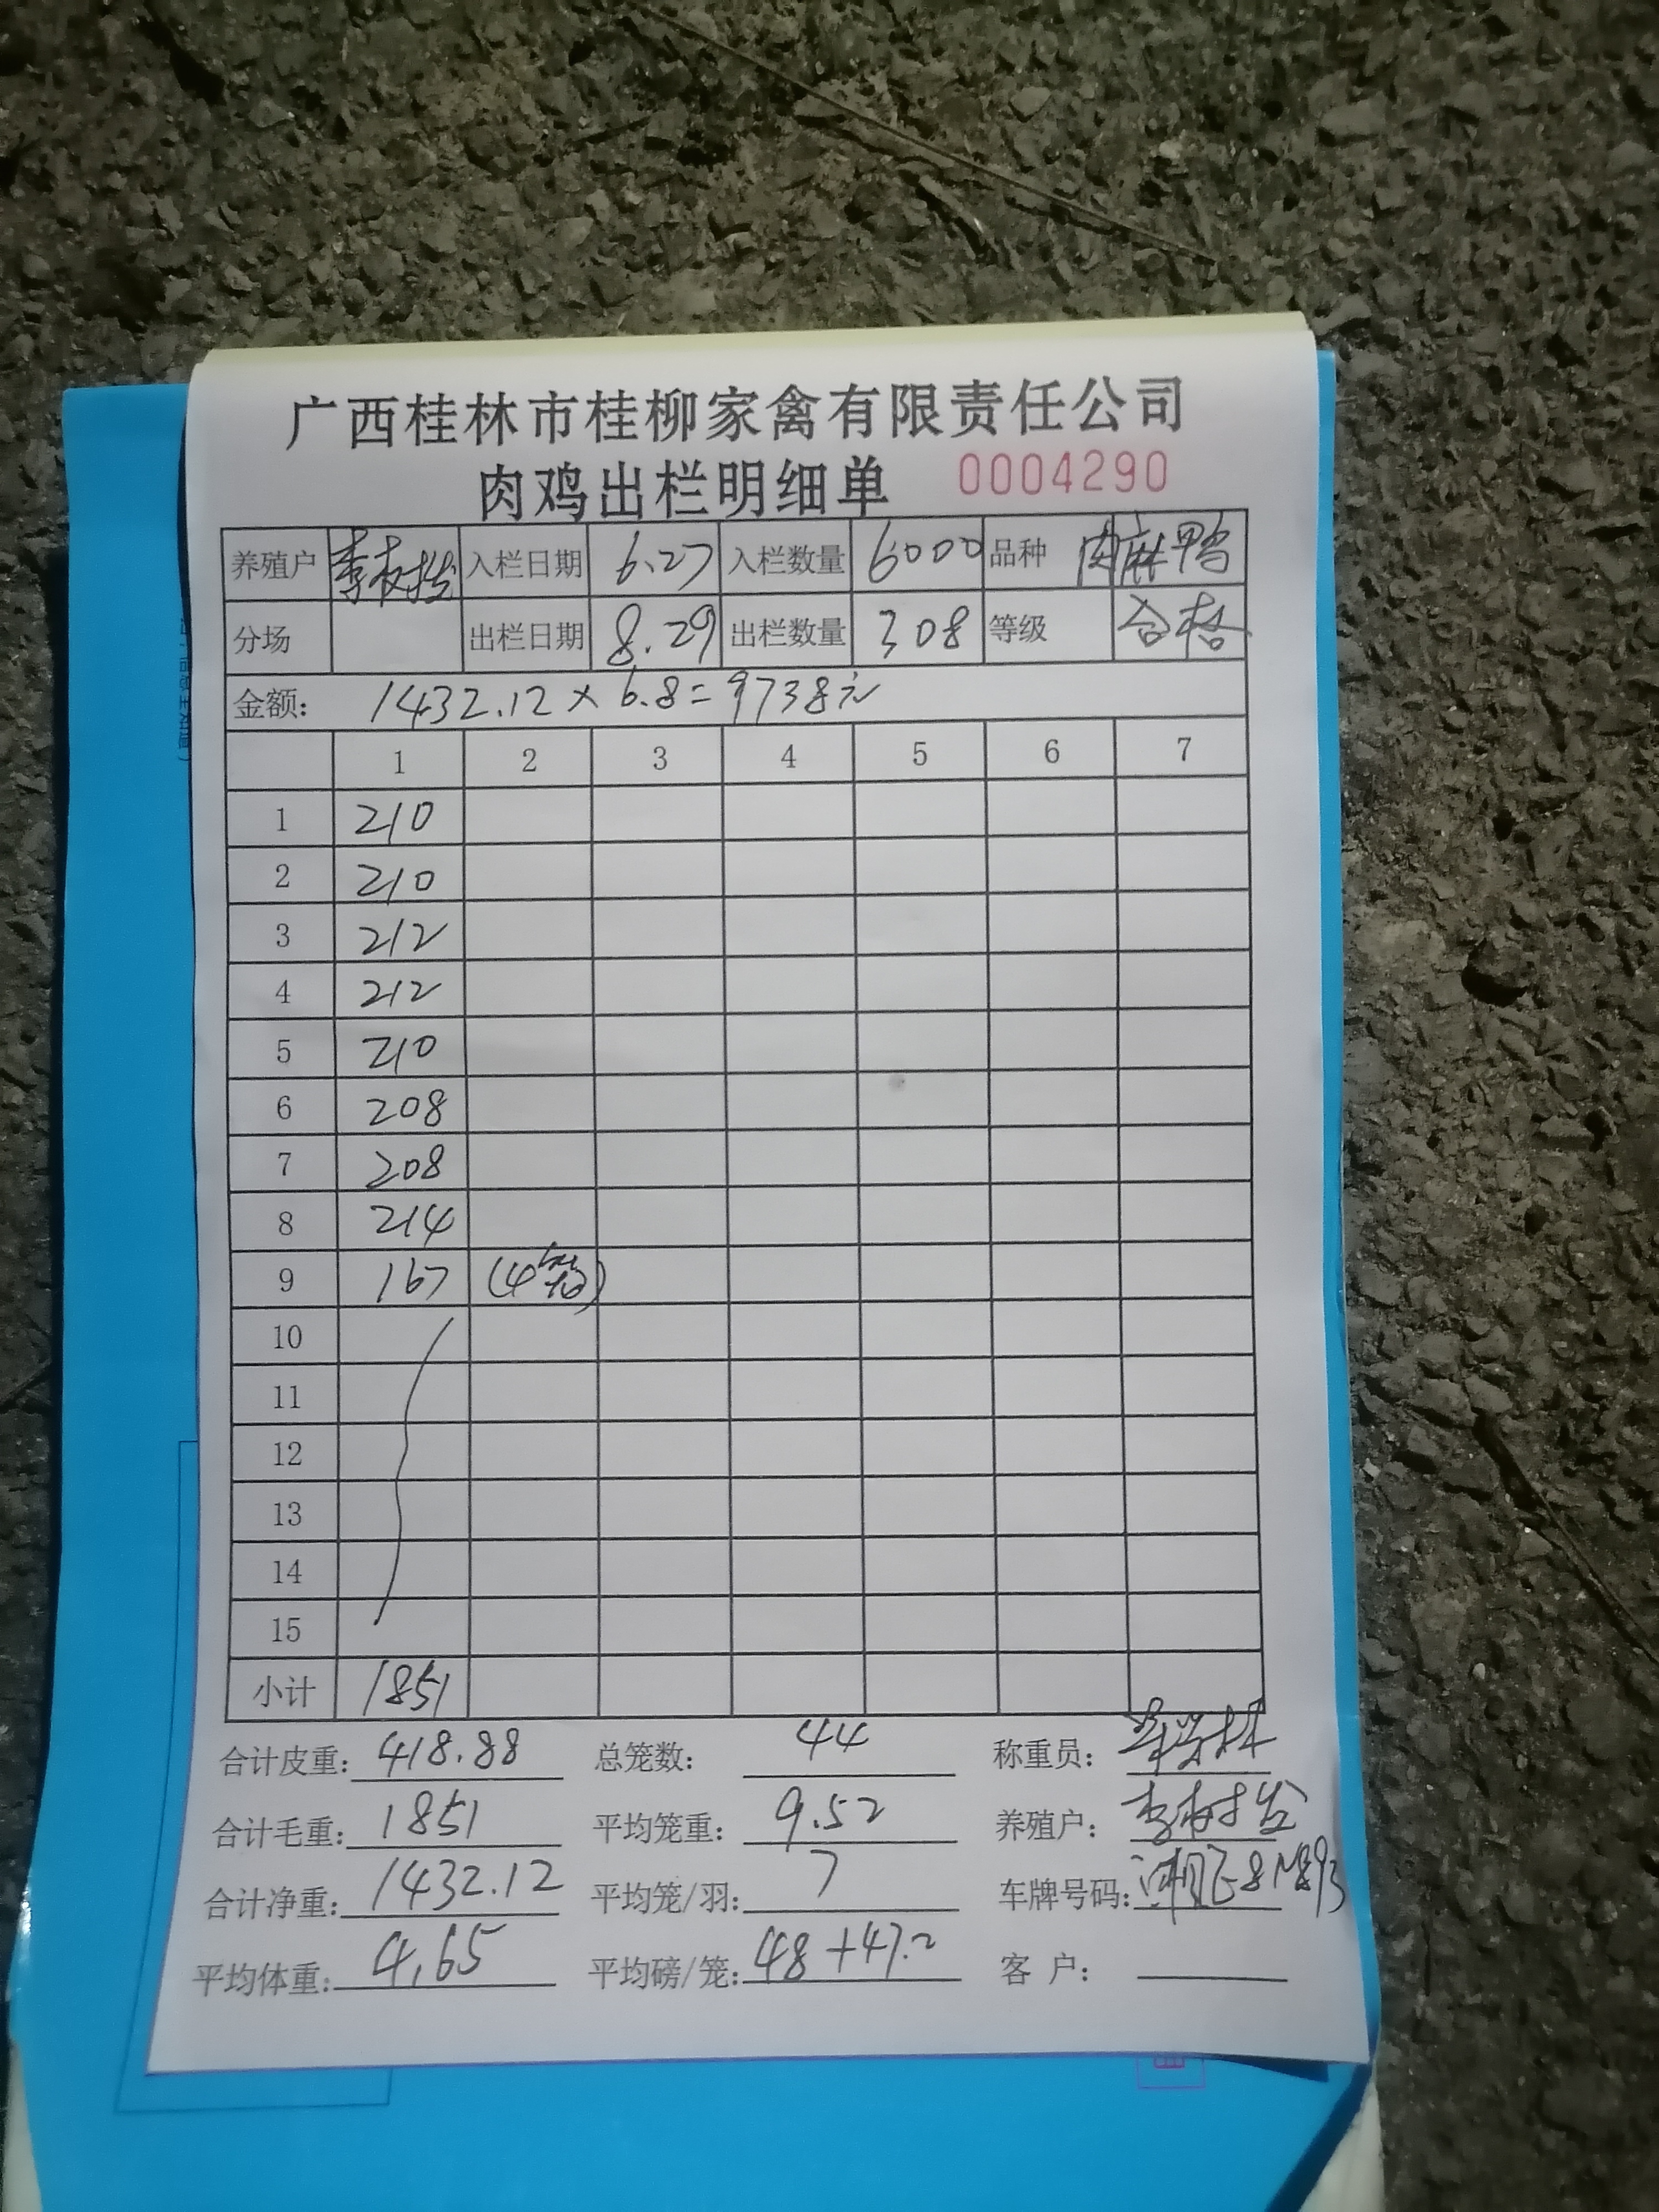 广西桂林市桂柳家禽有限责任公司
肉鸡出栏明细单 0004290
养殖户 李友拴 入栏日期 6.27 入栏数量 6000 品种 肉麻鸭
分场 出栏日期 8.29 出栏数量 308 等级 合格
金额: 1432.12 × 6.8 = 9738元
1 2 3 4 5 6 7
1 210
2 210
3 212
4 212
5 210
6 208
7 208
8 214
9 167 (4笼)
10
11
12
13
14
15
小计 1851
合计皮重: 418.88 总笼数: 44 称重员:
合计毛重: 1851 平均笼重: 9.52 养殖户:
合计净重: 1432.12 平均笼/羽: 7 车牌号码:
平均体重: 4.65 平均磅/笼: 48+47.2 客 户: